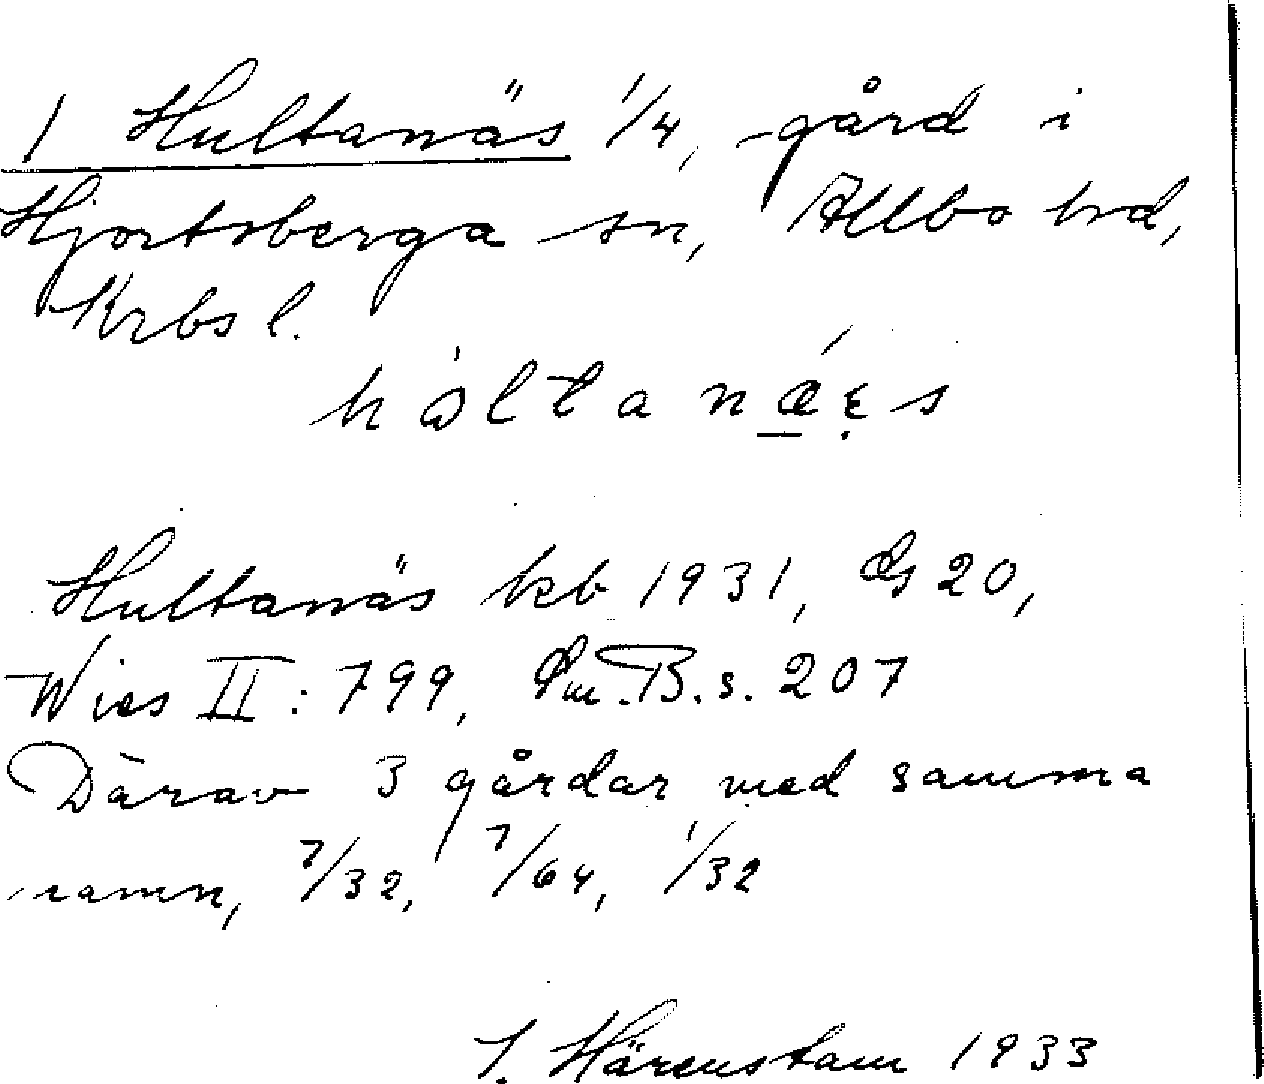 1 Hultanäs 1/4, gård i
Hjortsberga sn, Allbo hd,
Krbs l.
hòltanǽɛs
Hultanäs kb 1931, GS 20,
Wies II: 799, Sm. B. s. 207
Därav 3 gårdar med samma
namn, 7/32, 7/64, 1/32
J. Härenstam 1933